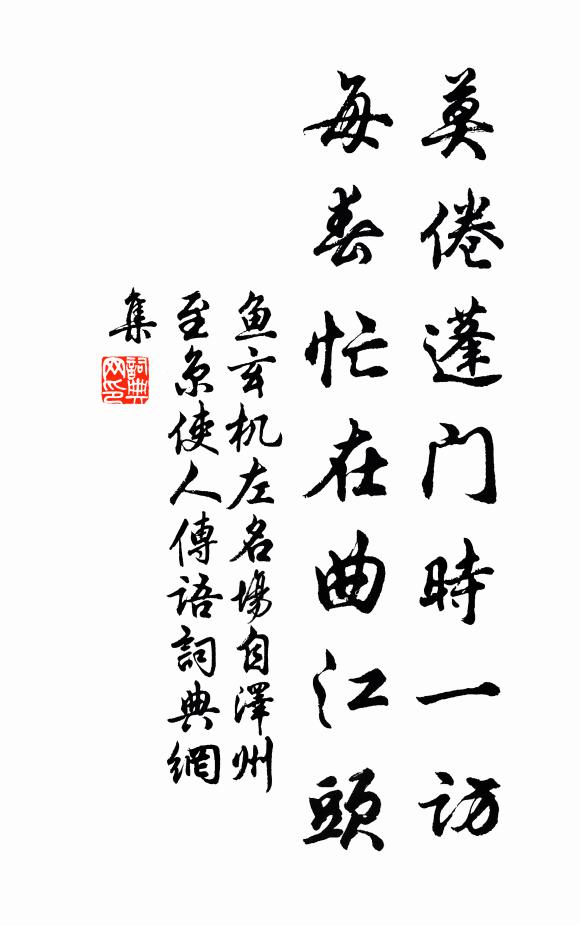 莫倦蓬门時一访
每春忙在曲江頭
鱼玄机左名場自澤州
至京使人傳语詞典網
集
詞典
网印